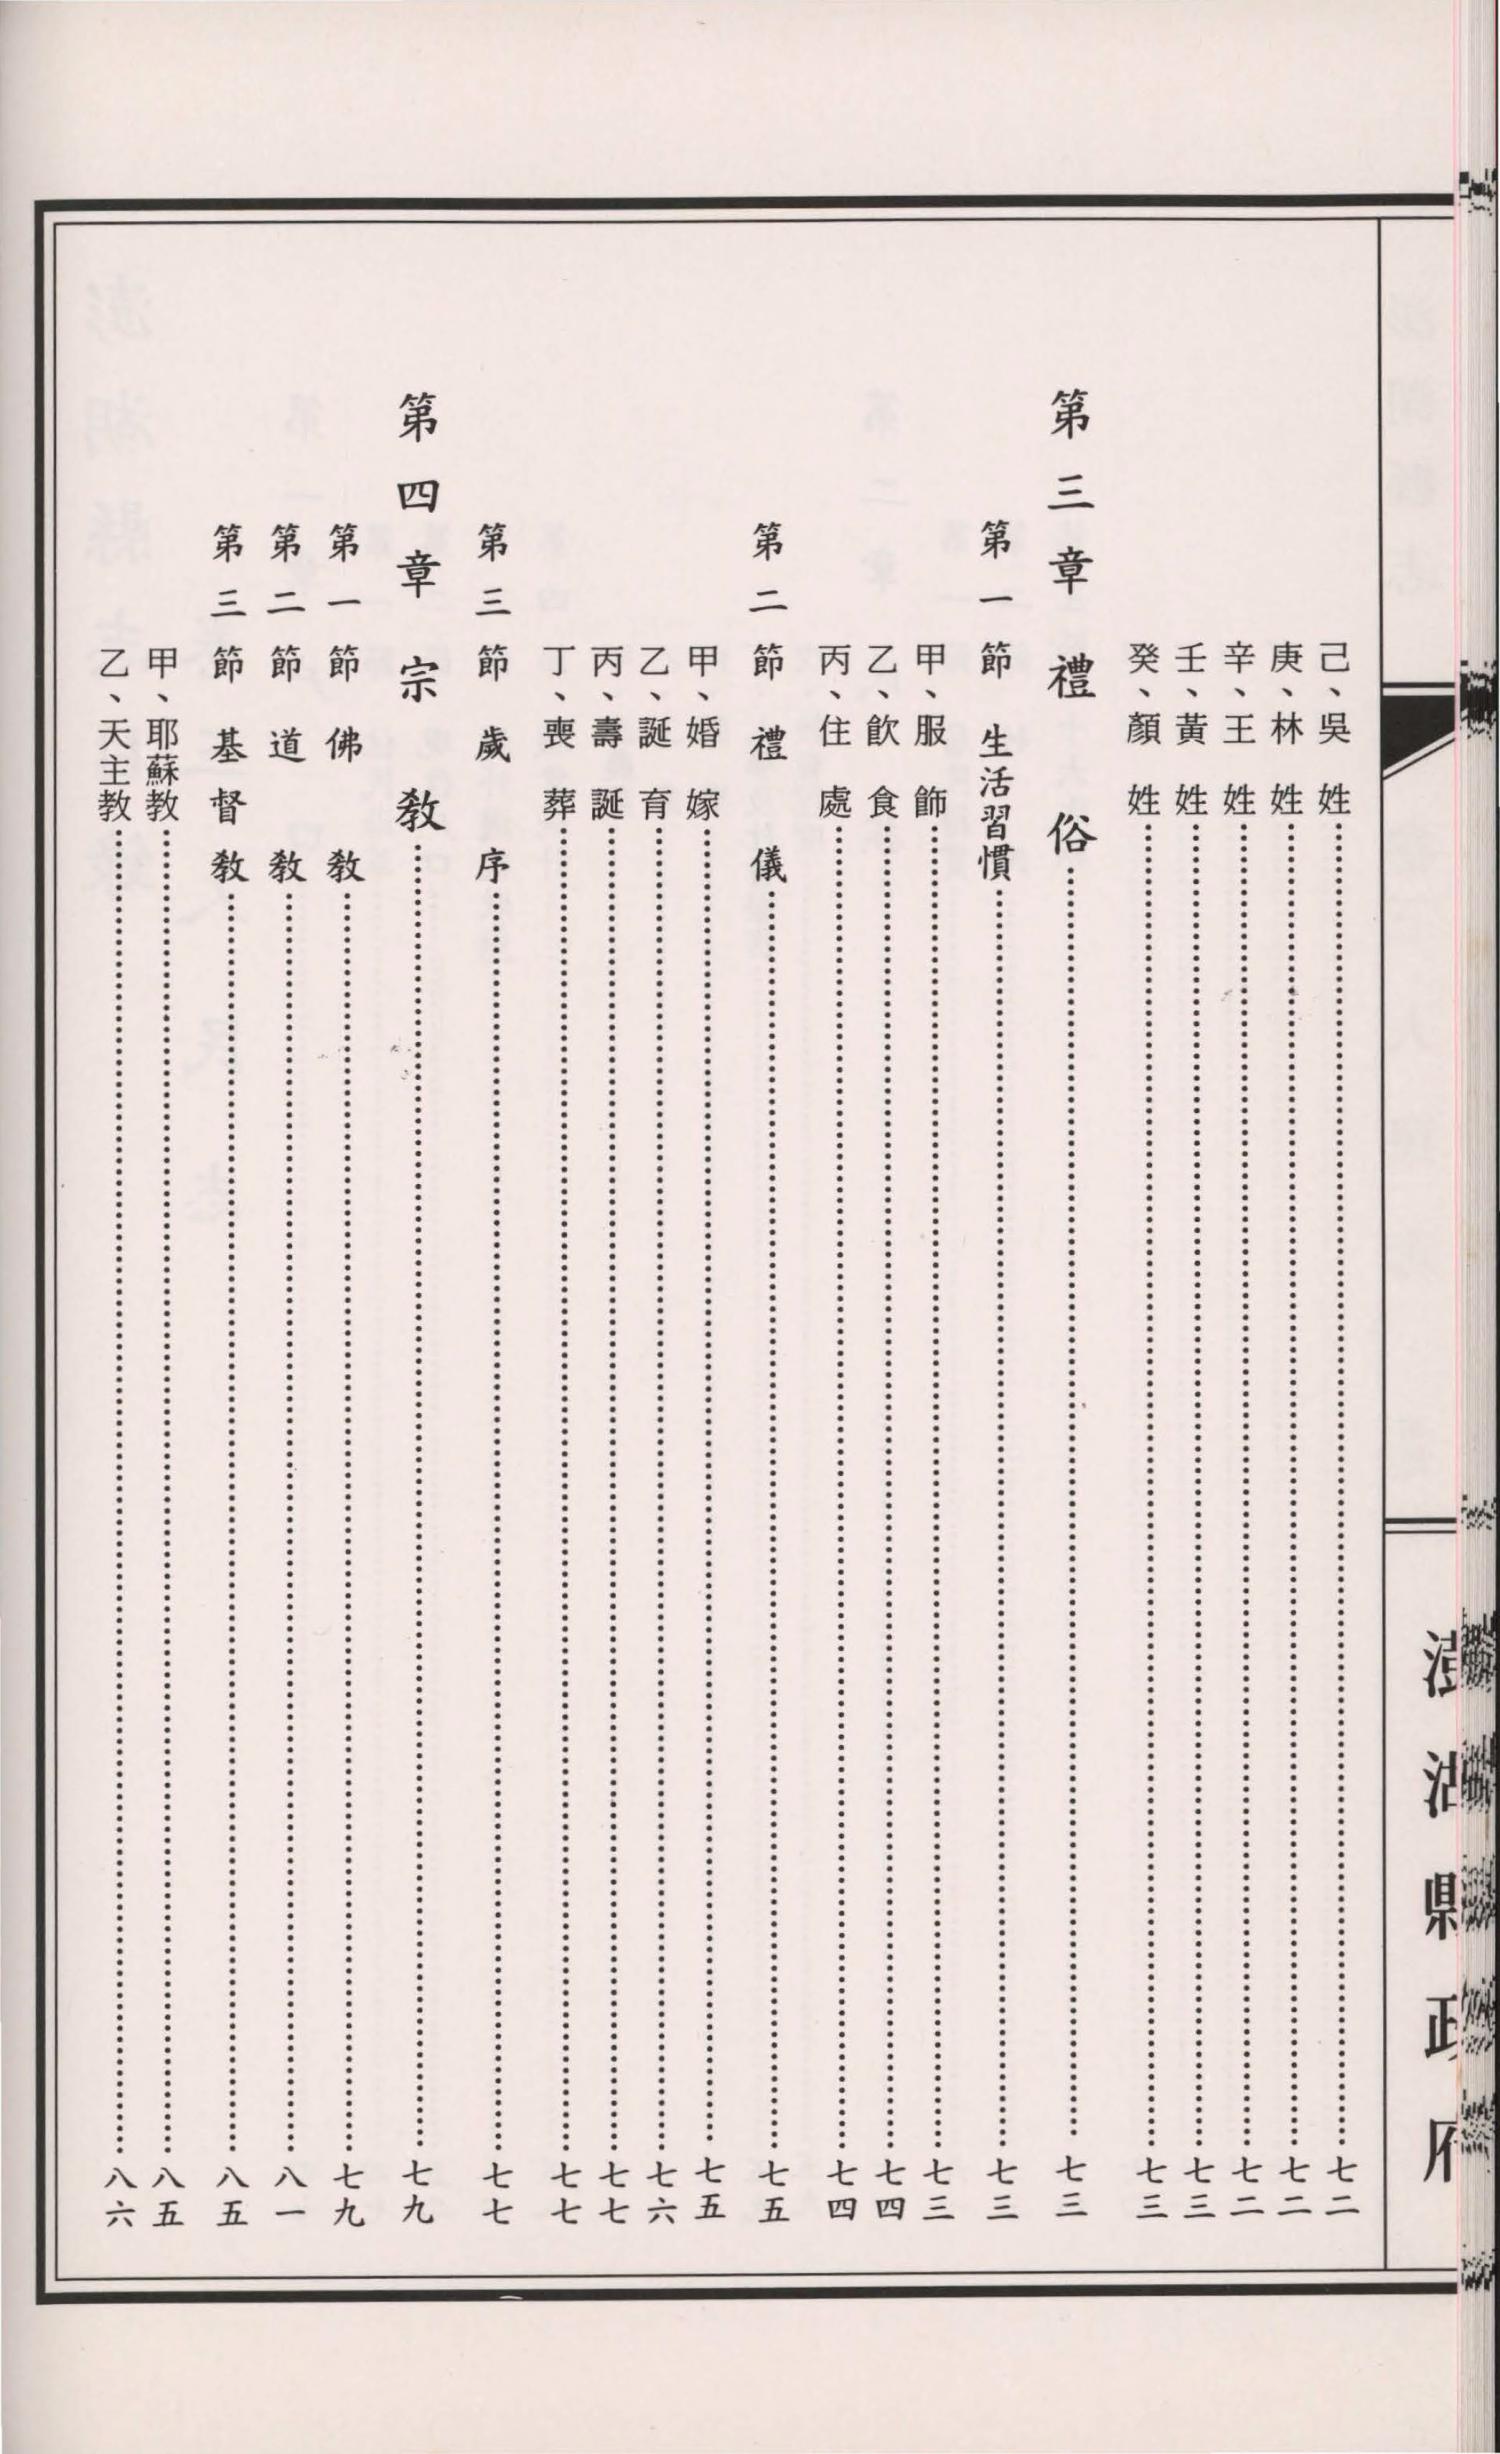 己、吳 姓……七二
庚、林 姓……七二
辛、王 姓……七二
壬、黃 姓……七三
癸、顏 姓……七三
第三章 禮 俗……七三
第一節 生活習慣……七三
甲、服 飾……七三
乙、飲 食……七四
丙、住 處……七四
第二節 禮 儀……七五
甲、婚 嫁……七五
乙、誕 育……七六
丙、壽 誕……七七
丁、喪 葬……七七
第三節 歲 序……七七
第四章 宗 教……七九
第一節 佛 教……七九
第二節 道 教……八一
第三節 基督教……八五
甲、耶蘇教……八五
乙、天主教……八六
澎湖縣政府